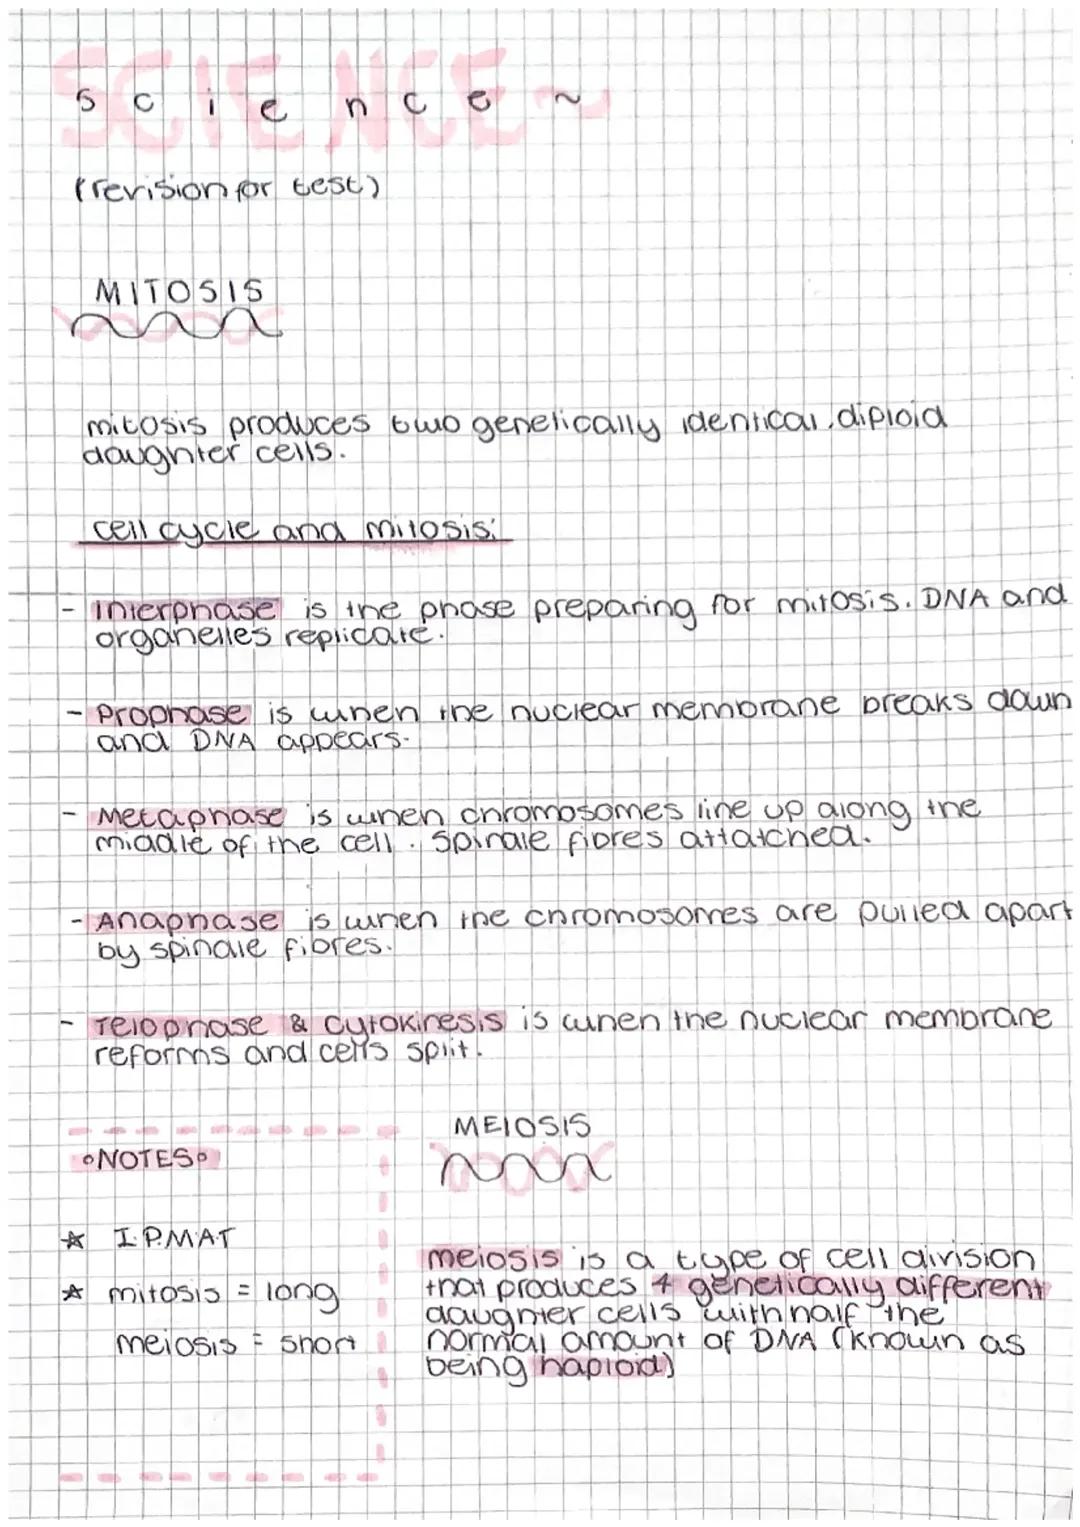 SCIENCE~
science ~
(revision for test)
MITOSIS
mitosis produces two genetically identical, diploid
daughter cells.
cell cycle and mitosis:
- Interphase is the phase preparing for mitosis. DNA and
organelles replicate.
- Prophase is when the nuclear membrane breaks down
and DNA appears.
- Metaphase is when chromosomes line up along the
middle of the cell. Spindle fibres attatched.
- Anaphase is when the chromosomes are pulled apart
by spindle fibres.
- Telophase & cytokinesis is when the nuclear membrane
reforms and cells split.
°NOTES°
☆ I.P.M.A.T
☆ mitosis = long
meiosis = short
MEIOSIS
meiosis is a type of cell division
that produces 4 genetically different
daughter cells with half the
normal amount of DNA (known as
being haploid)